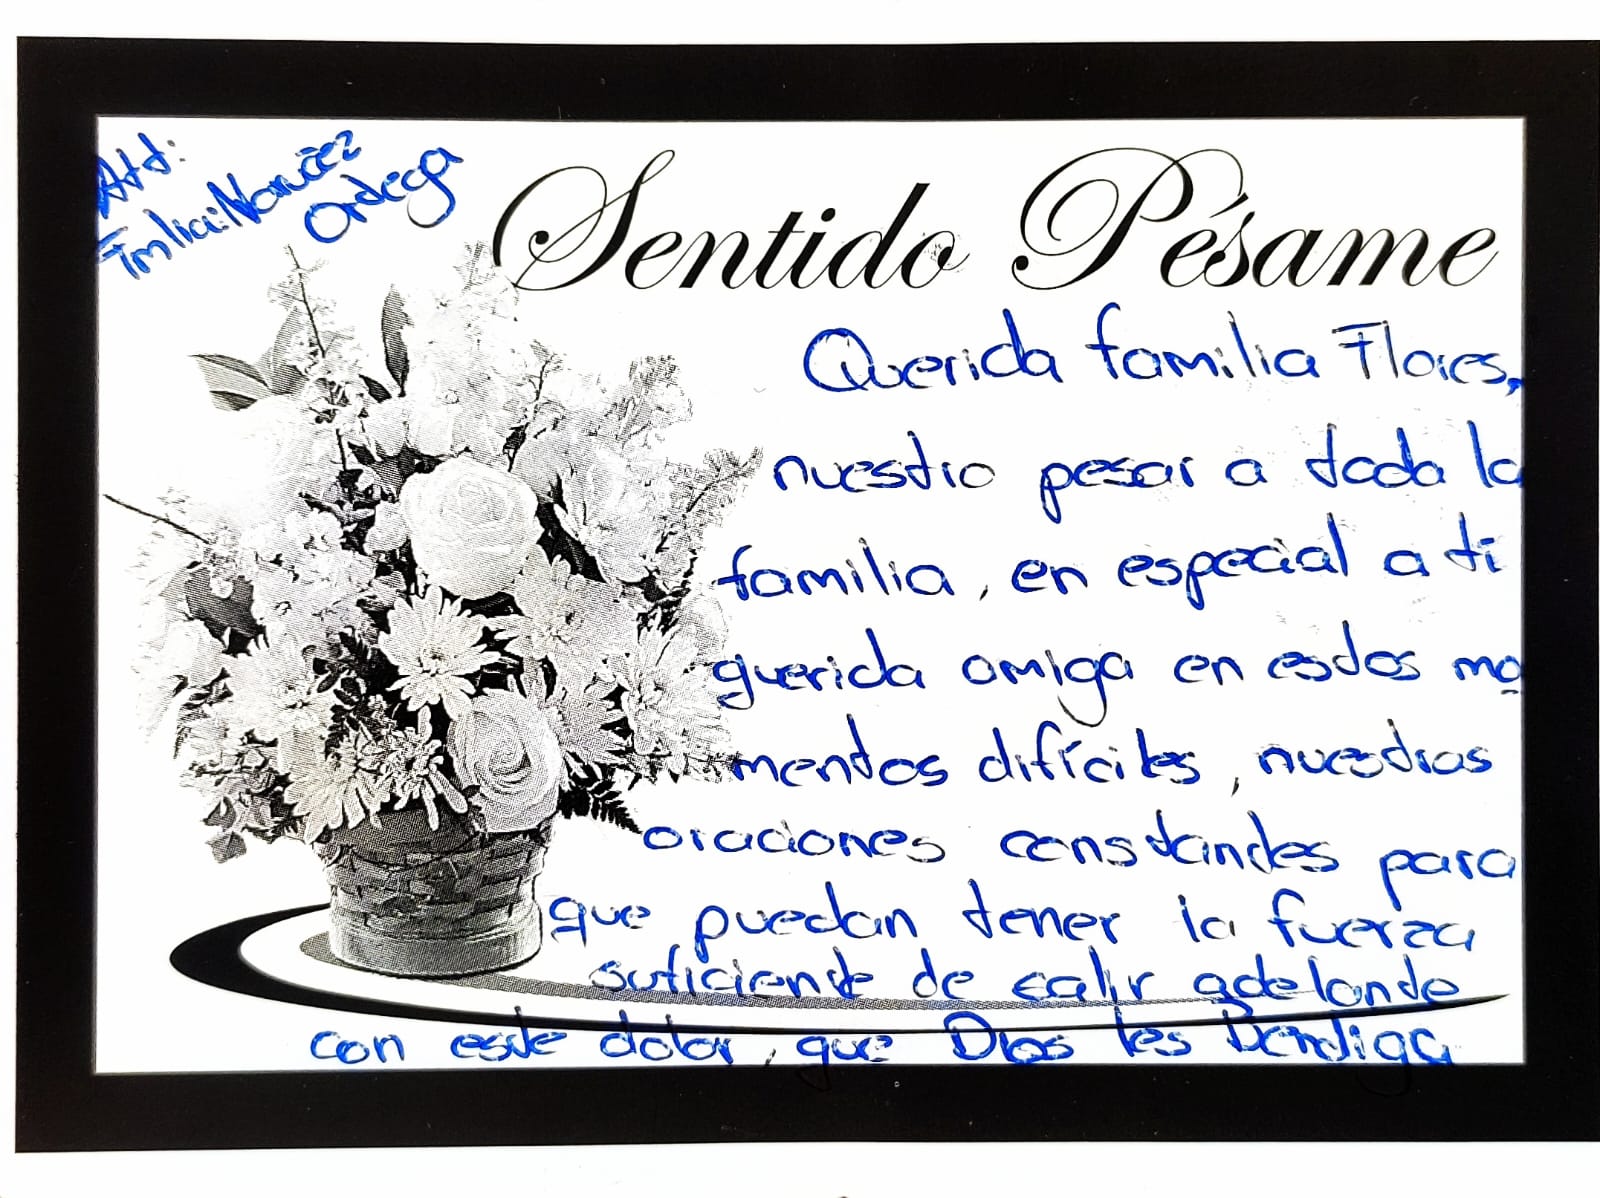 Att:
Fmlia: Narváez
Ortega
Sentido Pésame
Querida familia Flores,
nuestro pesar a toda la
familia, en especial a ti
querida amiga en estos mo
mentos difíciles, nuestras
oraciones constantes para
que puedan tener la fuerza
suficiente de salir adelante
con este dolor, que Dios les Bendiga